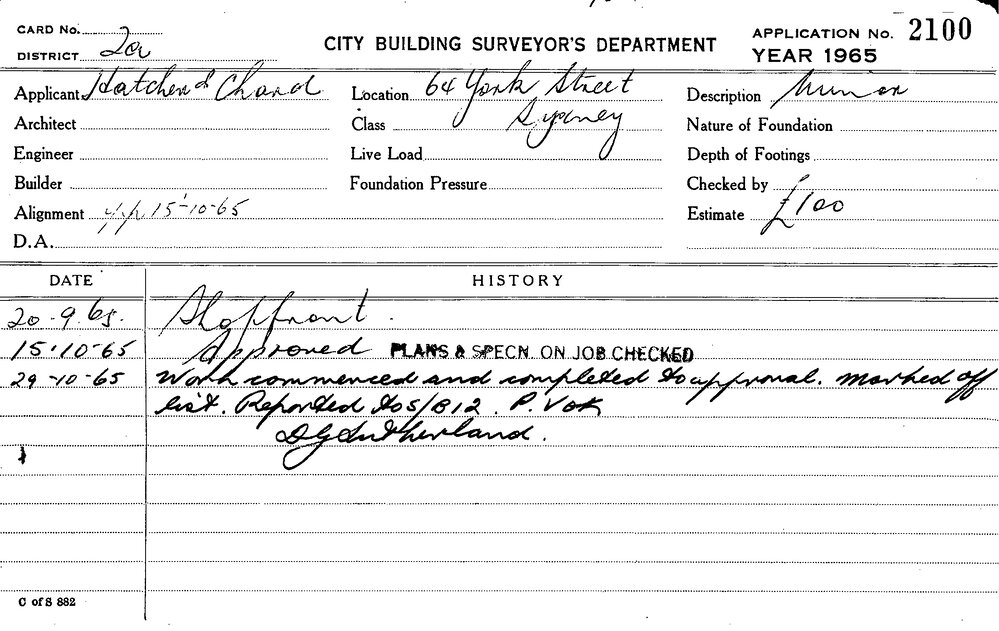 CARD No.
DISTRICT 2a
CITY BUILDING SURVEYOR'S DEPARTMENT
APPLICATION No. 2100
YEAR 1965
Applicant Hatchend Chand
Location 64 York Street
Sydney
Description Minor
Architect
Class
Nature of Foundation
Engineer
Live Load
Depth of Footings
Builder
Foundation Pressure
Checked by
Alignment 15-10-65
Estimate £100
D.A.
DATE HISTORY
20.9.65. Shopfront.
15.10-65 Approved PLANS & SPECN. ON JOB CHECKED
29-10-65 Work commenced and completed to approval. Marked off
list. Reported to S/B12.
DGSutherland.
C of S 882